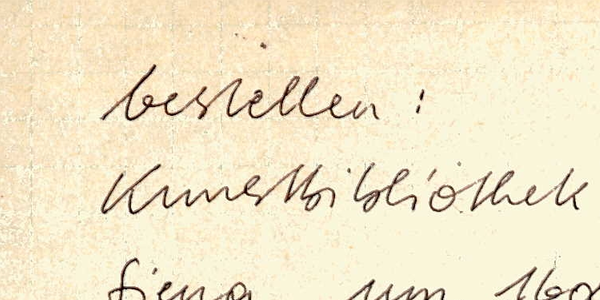 bestellen:
Kunstbibliothek
Siena um 160